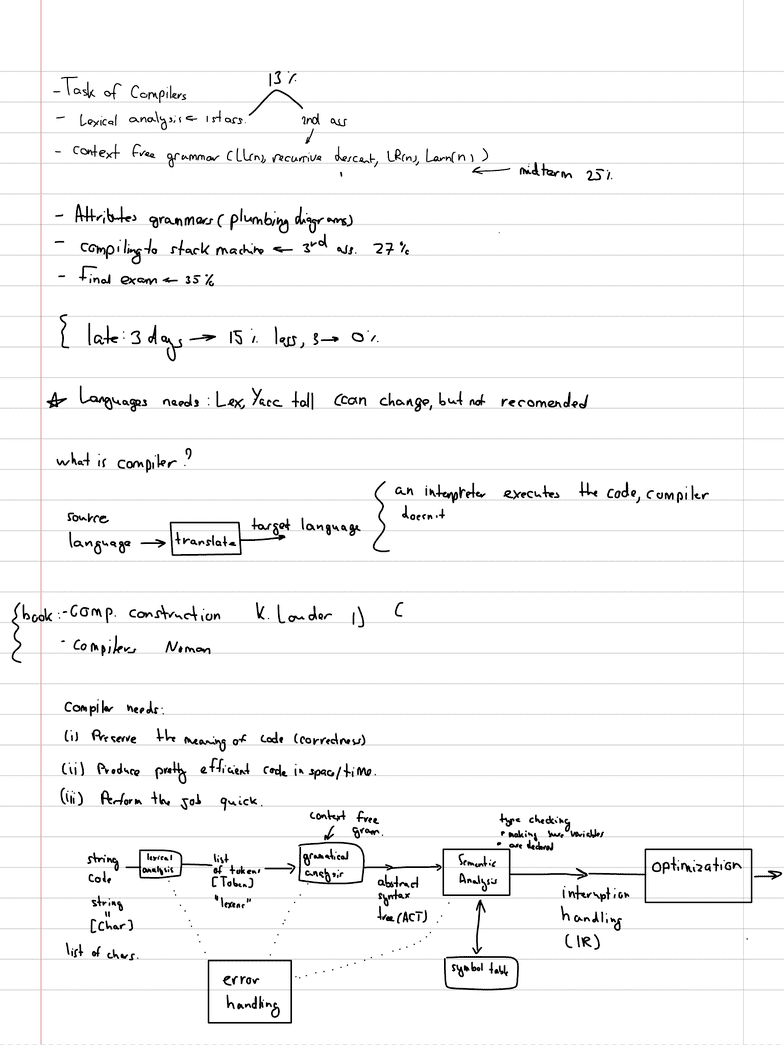 13 %
- Task of Compilers
- Lexical analysis ← 1st ass. 2nd ass
- Context free grammar (LL(n), recursive descent, LR(n), Larn(n))
← midterm 25%
- Attributes grammars (plumbing digrams)
- compiling to stack machine ← 3rd ass. 27%
- Final exam ← 35%
{ late: 3 days → 15 % less, 3 → 0 %
☆ Languages needs: Lex, Yacc tall (can change, but not recomended
what is compiler?
{ an interpreter executes the code, compiler
doesn't
source
language → translate target language
{ book: - Comp. construction K. Louder 1) C
- Compilers Noman
Compiler needs:
(i) Preserve the meaning of code (correctness)
(ii) Produce pretty efficient code in space/time.
(iii) Perform the job quick.
context free
gram.
type checking
• making sure variables
• are declared
string
code
string
=
[Char]
list of chars.
lexical
analysis
list
of tokens
[Token]
"lexene"
gramatical
analysis
abstract
syntax
tree (ACT)
Semantic
Analysis
symbol table
interuption
handling
(IR)
optimization
error
handling